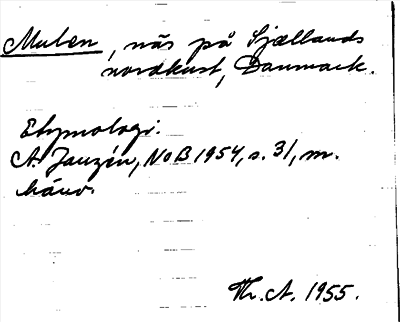 Mulen, näs på Sjællands
nordkust, Danmark.
Etymologi:
A. Janzén, NoB 1954, s. 31, m.
hänv.
Th. A. 1955.